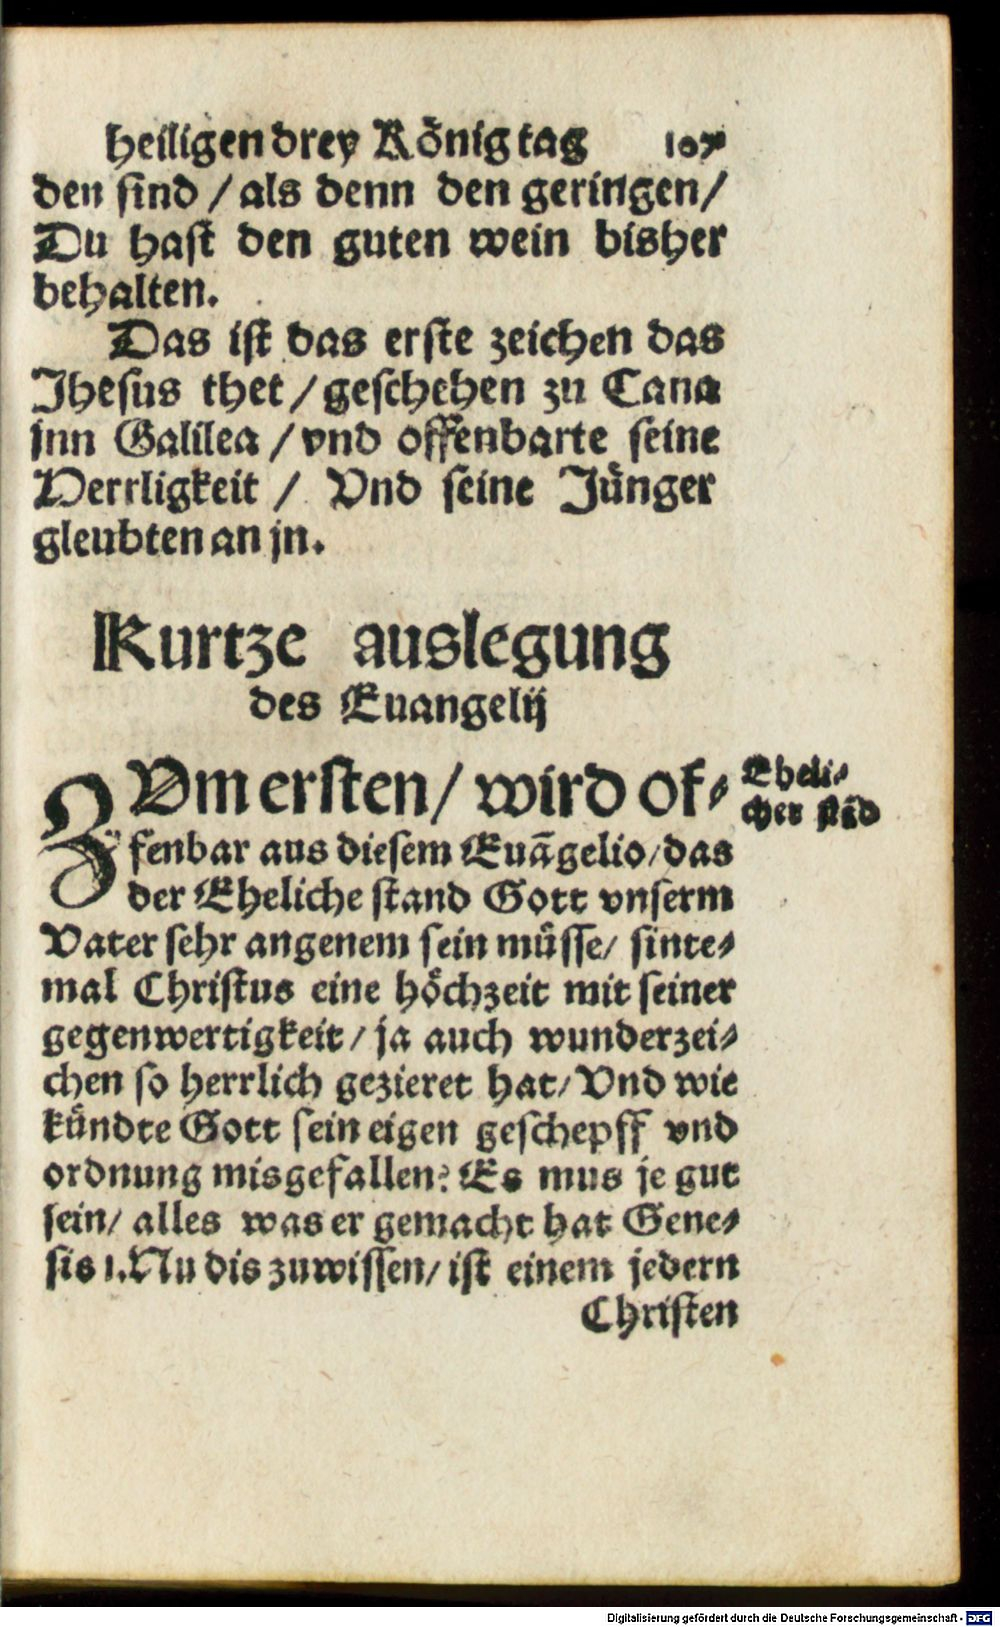 heiligen drey König tag 107
den sind / als denn den geringen /
Du hast den guten wein bisher
behalten.
Das ist das erste zeichen das
Jhesus thet / geschehen zu Cana
jnn Galilea / vnd offenbarte seine
Herrligkeit / Vnd seine Jünger
gleubten an jn.
Kurtze auslegung
des Euangelij
ZVm ersten / wird of-
fenbar aus diesem Euāgelio / das
der Eheliche stand Gott vnserm
Vater sehr angenem sein müsse / sinte-
mal Christus eine höchzeit mit seiner
gegenwertigkeit / ja auch wunderzei-
chen so herrlich gezieret hat / Vnd wie
kündte Gott sein eigen geschepff vnd
ordnung misgefallen? Es mus je gut
sein / alles was er gemacht hat Gene-
sis 1. Nu dis zuwissen / ist einem jedern
Christen
Eheli-
cher stād
Digitalisierung gefördert durch die Deutsche Forschungsgemeinschaft - DFG